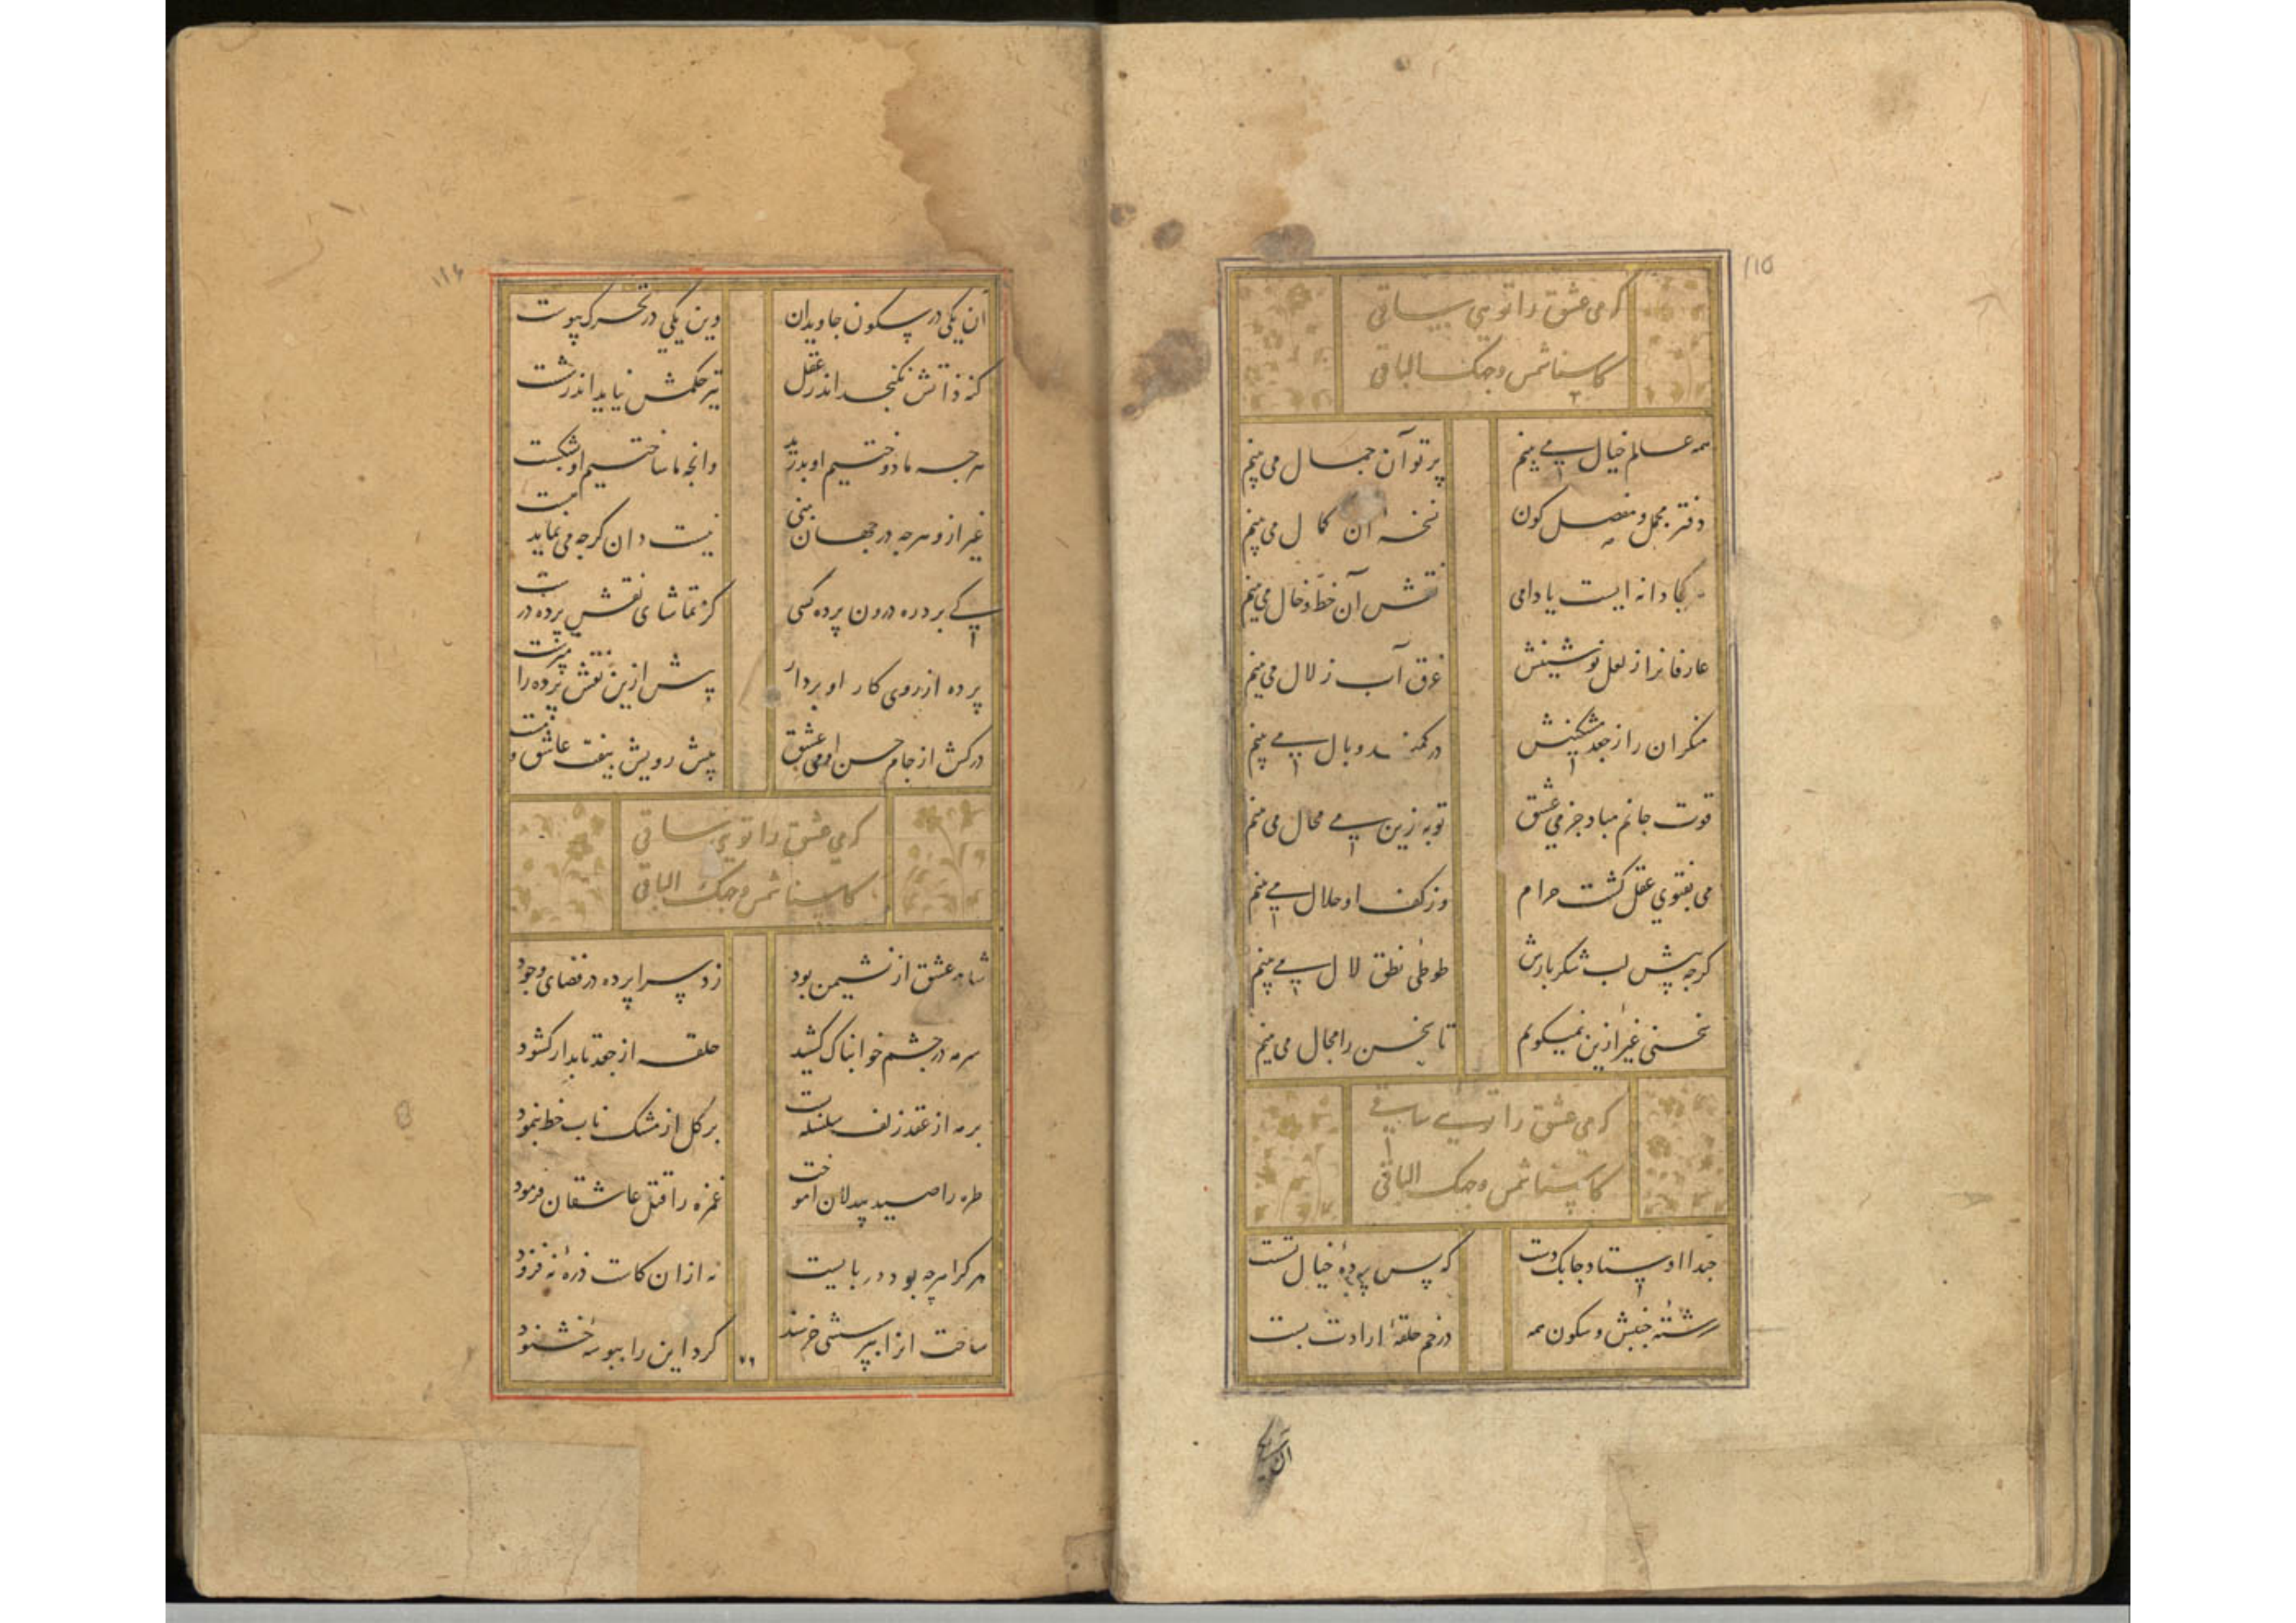 ۱۱۵
کرمی عشق را تویی ساقی
کاسنا شمس وجهک الباقی
همه عالم خیال می بینم
پرتو آن جمال می بینم
دفتر مجمل و مفصل کون
نسخه آن کمال می بینم
هر کجا دانه ایست یا دامی
نقش آن خط و خال می بینم
عارفانرا ز لعل نوشینش
غرق آب زلال می بینم
منکران را ز جعد مشکینش
در کمند وبال می بینم
قوت جانم مباد جز می عشق
توبه زین می محال می بینم
می بفتوی عقل کشت حرام
وز کف او حلال می بینم
کرچه پیش لب شکربارش
طوطی نطق لال می بینم
سخنی غیر ازین نمیکویم
تا سخن را مجال می بینم
کرمی عشق را تویی ساقی
کاسنا شمس وجهک الباقی
حبذا اوستاد چابک دست
که پس پرده خیال نشست
رشته جنبش و سکون همه
در خم حلقه ارادت بست
آن یکی
۱۱۶
آن یکی در سکون جاویدان
وین یکی در تحرک پیوست
کنه ذاتش نکنجد اندر عقل
تیر حکمش نیاید اندر شست
هرچه ما دوختیم او بدرید
وانچه ما ساختیم او بشکست
غیر ازو هرچه در جهان بینی
نیست دان کرچه می نماید هست
کی برد ره درون پرده کسی
کز تماشای نقش پرده درست
پرده از روی کار او بردار
پیش ازین نقش پرده را مپرست
درکش از جام حسن او می عشق
پیش رویش بیفت عاشق و مست
کرمی عشق را تویی ساقی
کاسنا شمس وجهک الباقی
شاه عشق از نشیمن بود
زد سراپرده در فضای وجود
سرمه در چشم خوابناک کشید
حلقه از جعد تابدار کشود
بر مه از عقد زلف سلسله بست
بر کل از مشک ناب خط بنمود
طره را صید بیدلان آموخت
غمزه را قتل عاشقان فرمود
هر کرا هرچه بود دربایست
نه ازان کاست ذره نه فزود
ساخت آنرا بپرسشی خرسند
کرد این را ببوسه خشنود
۷۶